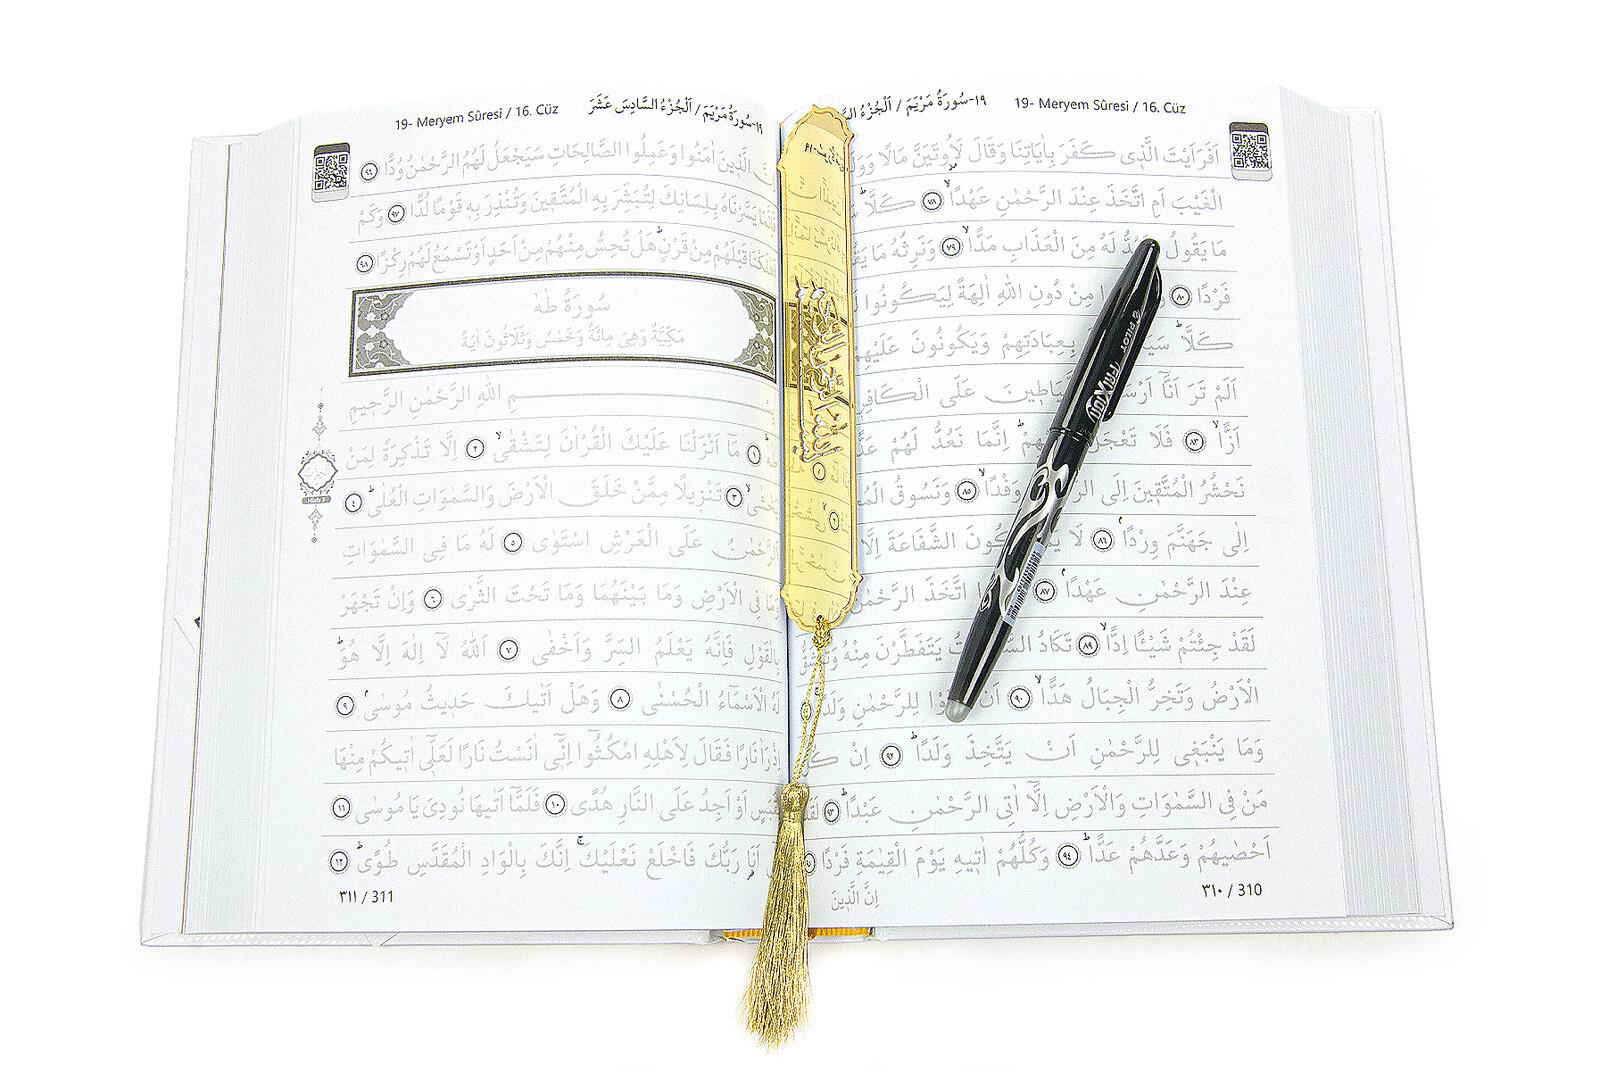 ١٩-سُورَةُ مَرْيَمَ / اَلْجُزْءُ السَّ
19- Meryem Sûresi / 16. Cüz
اَفَرَاَيْتَ الَّذ۪ى كَفَرَ بِاٰيَاتِنَا وَقَالَ لَاُو۫تَيَنَّ مَالًا وَوَلَ
الْغَيْبَ اَمِ اتَّخَذَ عِنْدَ الرَّحْمٰنِ عَهْدًاۙ ﴿٧٨﴾ كَلَّاۜ
مَا يَقُولُ وَنَمُدُّ لَهُ مِنَ الْعَذَابِ مَدًّاۙ ﴿٧٩﴾ وَنَرِثُهُ مَا يَقُ
فَرْدًا ﴿٨٠﴾ مِنْ دُونِ اللّٰهِ اٰلِهَةً لِيَكُونُوا
كَلَّاۜ سَيَ بِعِبَادَتِهِمْ وَيَكُونُونَ عَلَيْهِمْ
اَلَمْ تَرَ اَنَّٓا اَرْسَ يَاط۪ينَ عَلَى الْكَافِر۪
اَزًّاۙ ﴿٨٣﴾ فَلَا تَعْجَلْ هِمْۜ اِنَّمَا نَعُدُّ لَهُمْ عَدًّ
نَحْشُرُ الْمُتَّق۪ينَ اِلَى الرَّ وَفْدًاۙ ﴿٨٥﴾ وَنَسُوقُ الْمُ
اِلٰى جَهَنَّمَ وِرْدًاۢ ﴿٨٦﴾ لَا يَمْ كُونَ الشَّفَاعَةَ اِلَّا
عِنْدَ الرَّحْمٰنِ عَهْدًاۢ ﴿٨٧﴾ اتَّخَذَ الرَّحْمٰنُ
لَقَدْ جِئْتُمْ شَيْـًٔا اِدًّاۙ ﴿٨٩﴾ تَكَادُ السَّ تُ يَتَفَطَّرْنَ مِنْهُ وَتَنْشَقُّ
الْاَرْضُ وَتَخِرُّ الْجِبَالُ هَدًّاۙ ﴿٩٠﴾ اَنْ وْا لِلرَّحْمٰنِ وَلَدًاۚ
وَمَا يَنْبَغ۪ى لِلرَّحْمٰنِ اَنْ يَتَّخِذَ وَلَدًاۜ ﴿٩٢﴾ اِنْ كُلُّ
مَنْ فِى السَّمٰوَاتِ وَالْاَرْضِ اِلَّٓا اٰتِى الرَّحْمٰنِ عَبْدًاۜ ﴿٩٣﴾ لَقَدْ
اَحْصٰيهُمْ وَعَدَّهُمْ عَدًّاۜ ﴿٩٤﴾ وَكُلُّهُمْ اٰت۪يهِ يَوْمَ الْقِيٰمَةِ فَرْدًا
اِنَّ الَّذ۪ينَ
٣١٠ / 310
PILOT
FRIXION
19- Meryem Sûresi / 16. Cüz
١٩-سُورَةُ مَرْيَمَ / اَلْجُزْءُ السَّادِسَ عَشَرَ
اِنَّ الَّذ۪ينَ اٰمَنُوا وَعَمِلُوا الصَّالِحَاتِ سَيَجْعَلُ لَهُمُ الرَّحْمٰنُ وُدًّا ﴿٩٦﴾
فَاِنَّمَا يَسَّرْنَاهُ بِلِسَانِكَ لِتُبَشِّرَ بِهِ الْمُتَّق۪ينَ وَتُنْذِرَ بِه۪ قَوْمًا لُدًّا ﴿٩٧﴾ وَكَمْ
اَهْلَكْنَا قَبْلَهُمْ مِنْ قَرْنٍۜ هَلْ تُحِسُّ مِنْهُمْ مِنْ اَحَدٍ اَوْ تَسْمَعُ لَهُمْ رِكْزًا ﴿٩٨﴾
سُورَةُ طٰهٰ
مَكِّيَّةٌ وَهِىَ مِائَةٌ وَخَمْسٌ وَثَلَاثُونَ اٰيَةً
بِسْمِ اللّٰهِ الرَّحْمٰنِ الرَّح۪يمِ
طٰهٰۜ ﴿١﴾ مَٓا اَنْزَلْنَا عَلَيْكَ الْقُرْاٰنَ لِتَشْقٰىۙ ﴿٢﴾ اِلَّا تَذْكِرَةً لِمَنْ
يَخْشٰىۙ ﴿٣﴾ تَنْز۪يلًا مِمَّنْ خَلَقَ الْاَرْضَ وَالسَّمٰوَاتِ الْعُلٰىۜ ﴿٤﴾
اَلرَّحْمٰنُ عَلَى الْعَرْشِ اسْتَوٰى ﴿٥﴾ لَهُ مَا فِى السَّمٰوَاتِ
وَمَا فِى الْاَرْضِ وَمَا بَيْنَهُمَا وَمَا تَحْتَ الثَّرٰى ﴿٦﴾ وَاِنْ تَجْهَرْ
بِالْقَوْلِ فَاِنَّهُ يَعْلَمُ السِّرَّ وَاَخْفٰى ﴿٧﴾ اَللّٰهُ لَٓا اِلٰهَ اِلَّا هُوَۜ
لَهُ الْاَسْمَٓاءُ الْحُسْنٰى ﴿٨﴾ وَهَلْ اَتٰيكَ حَد۪يثُ مُوسٰىۢ ﴿٩﴾
اِذْ رَاٰ نَارًا فَقَالَ لِاَهْلِهِ امْكُثُٓوا اِنّ۪ٓى اٰنَسْتُ نَارًا لَعَلّ۪ٓى اٰت۪يكُمْ مِنْهَا
بِقَبَسٍ اَوْ اَجِدُ عَلَى النَّارِ هُدًى ﴿١٠﴾ فَلَمَّٓا اَتٰيهَا نُودِىَ يَا مُوسٰى ﴿١١﴾
اِنّ۪ٓى اَنَا رَبُّكَ فَاخْلَعْ نَعْلَيْكَۚ اِنَّكَ بِالْوَادِ الْمُقَدَّسِ طُوًىۜ ﴿١٢﴾
٣١١ / 311